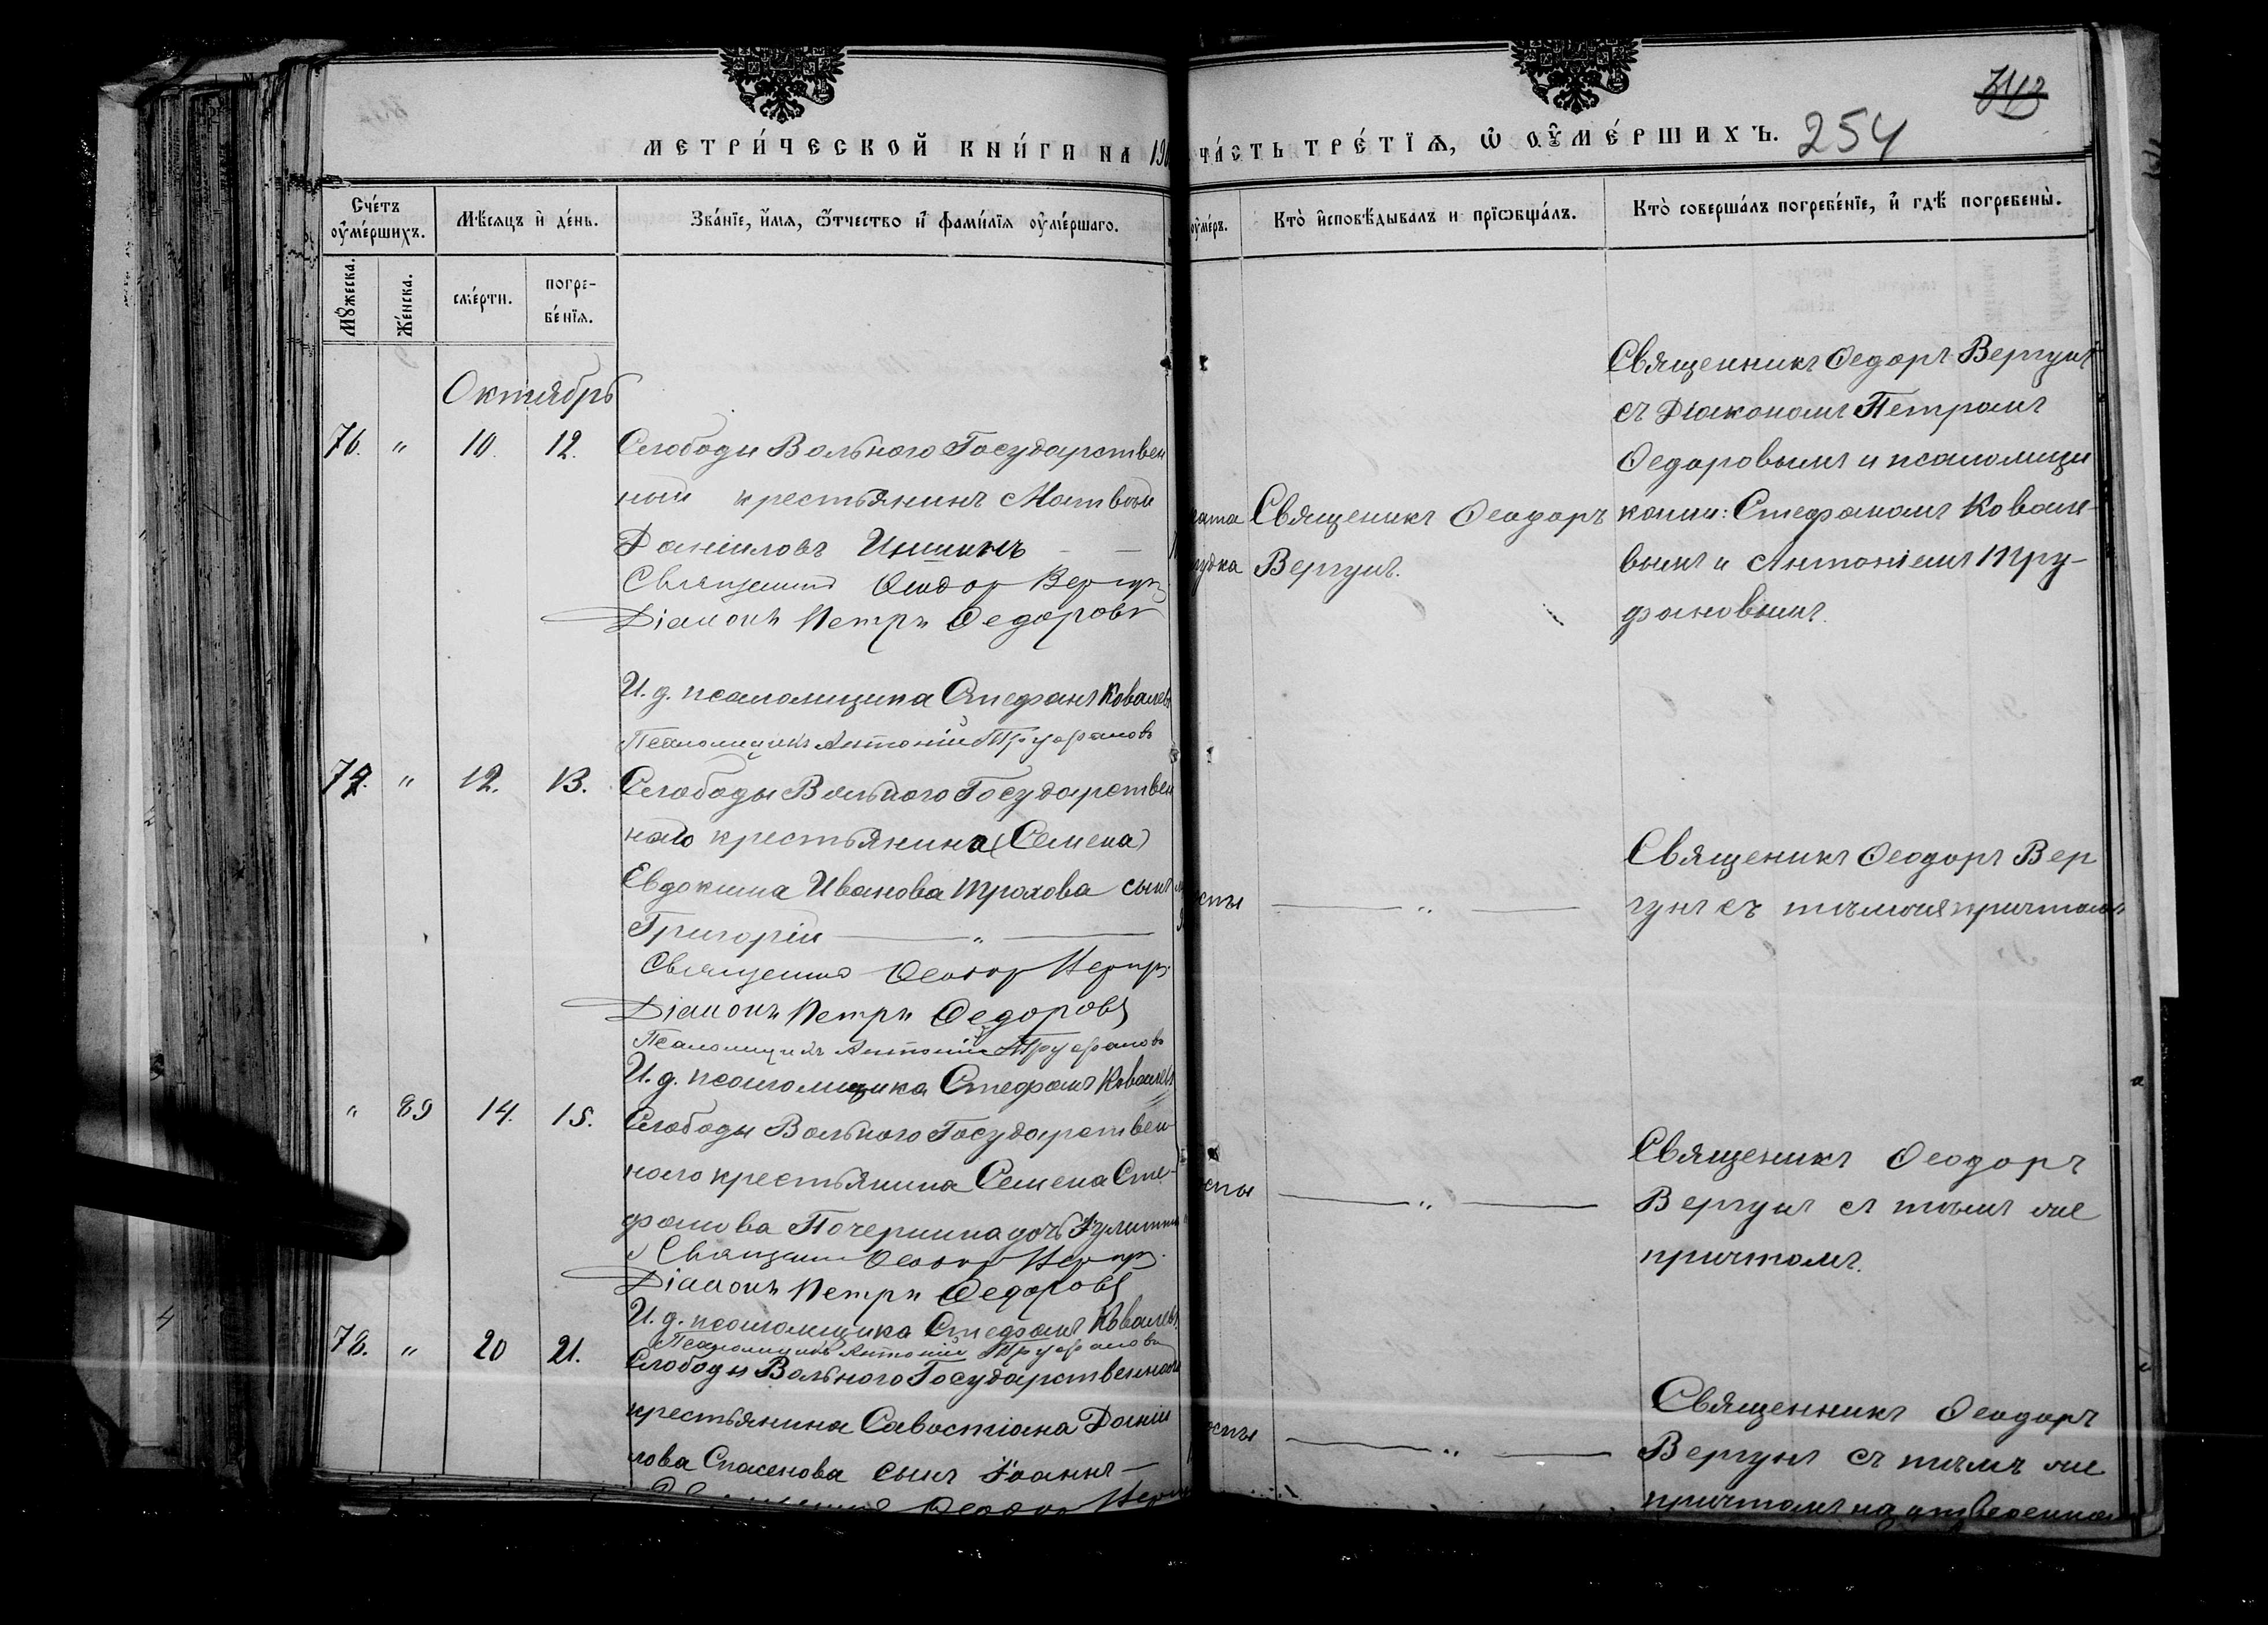 МЕТРИ́ЧЕСКОЙ КНИ́ГИ НА 190
ЧА́СТЬ ТРЕ́ТІѦ, Ѡ҆ ОУ҆МЕ́РШИХЪ.
254
Сче́тъ оу҆ме́ршихъ.
Мѣ́сяцъ и҆ де́нь.
Зва́нїе, и҆́мя, ѻ҆́тчество и҆ фами́лїя оу҆ме́ршаго.
оу҆ме́ръ.
Кто̀ и҆сповѣ́дывалъ и прїѡбща́лъ.
Кто̀ соверша́лъ погребе́нїе, и҆ гдѣ̀ погребены̀.
Мꙋ́жеска.
Же́нска.
сме́рти.
погре-
бе́нїѧ.
Октябрь
76. " 10. 12. Слободы Вольного Государствен
ный крестьянинъ Матвей
Даніиловъ
Священникъ Ѳеодор Вергун
Діаконъ Петръ Ѳедоровъ
И. д. псаломщика Стефанъ Ковалевъ
Псаломщикъ Антоній Труфановъ
Священикъ Ѳеодоръ
Вергунъ.
Священникъ Ѳедоръ Вергунъ
съ Діакономъ Петромъ
Ѳедоровымъ и псаломщи
ками: Стефаномъ Ковале-
вымъ и Антоніемъ Тру-
фановымъ.
77. " 12. 13. Слободы Вольного Государствен
наго крестьянина (Семена)
Евдокима Иванова Трохова сынъ
Григорій — " —
Священникъ Ѳеодор Вергун
Діаконъ Петръ Ѳедоровъ
Псаломщикъ Антоній Труфановъ
И. д. псаломщика Стефанъ Ковалевъ
оспы — " —
Священикъ Ѳеодоръ Вер
гунъ съ тѣмже причтомъ
" 89 14. 15. Слободы Вольного Государствен
наго крестьянина Семена Сте-
фанова дочь
Священникъ Ѳеодор Вергун
Діаконъ Петръ Ѳедоровъ
И. д. псаломщика Стефанъ Ковалевъ
Псаломщикъ Антоній Труфановъ
оспы — " —
Священикъ Ѳеодоръ
Вергунъ съ тѣмъ же
причтомъ.
78. " 20 21. Слободы Вольного Государственнаго
крестьянина Савостіана Даніи
лова Спасенова сынъ Іоаннъ —
Ѳеодор
оспы — " —
Священникъ Ѳеодоръ
Вергунъ съ тѣмъ же
причтомъ на